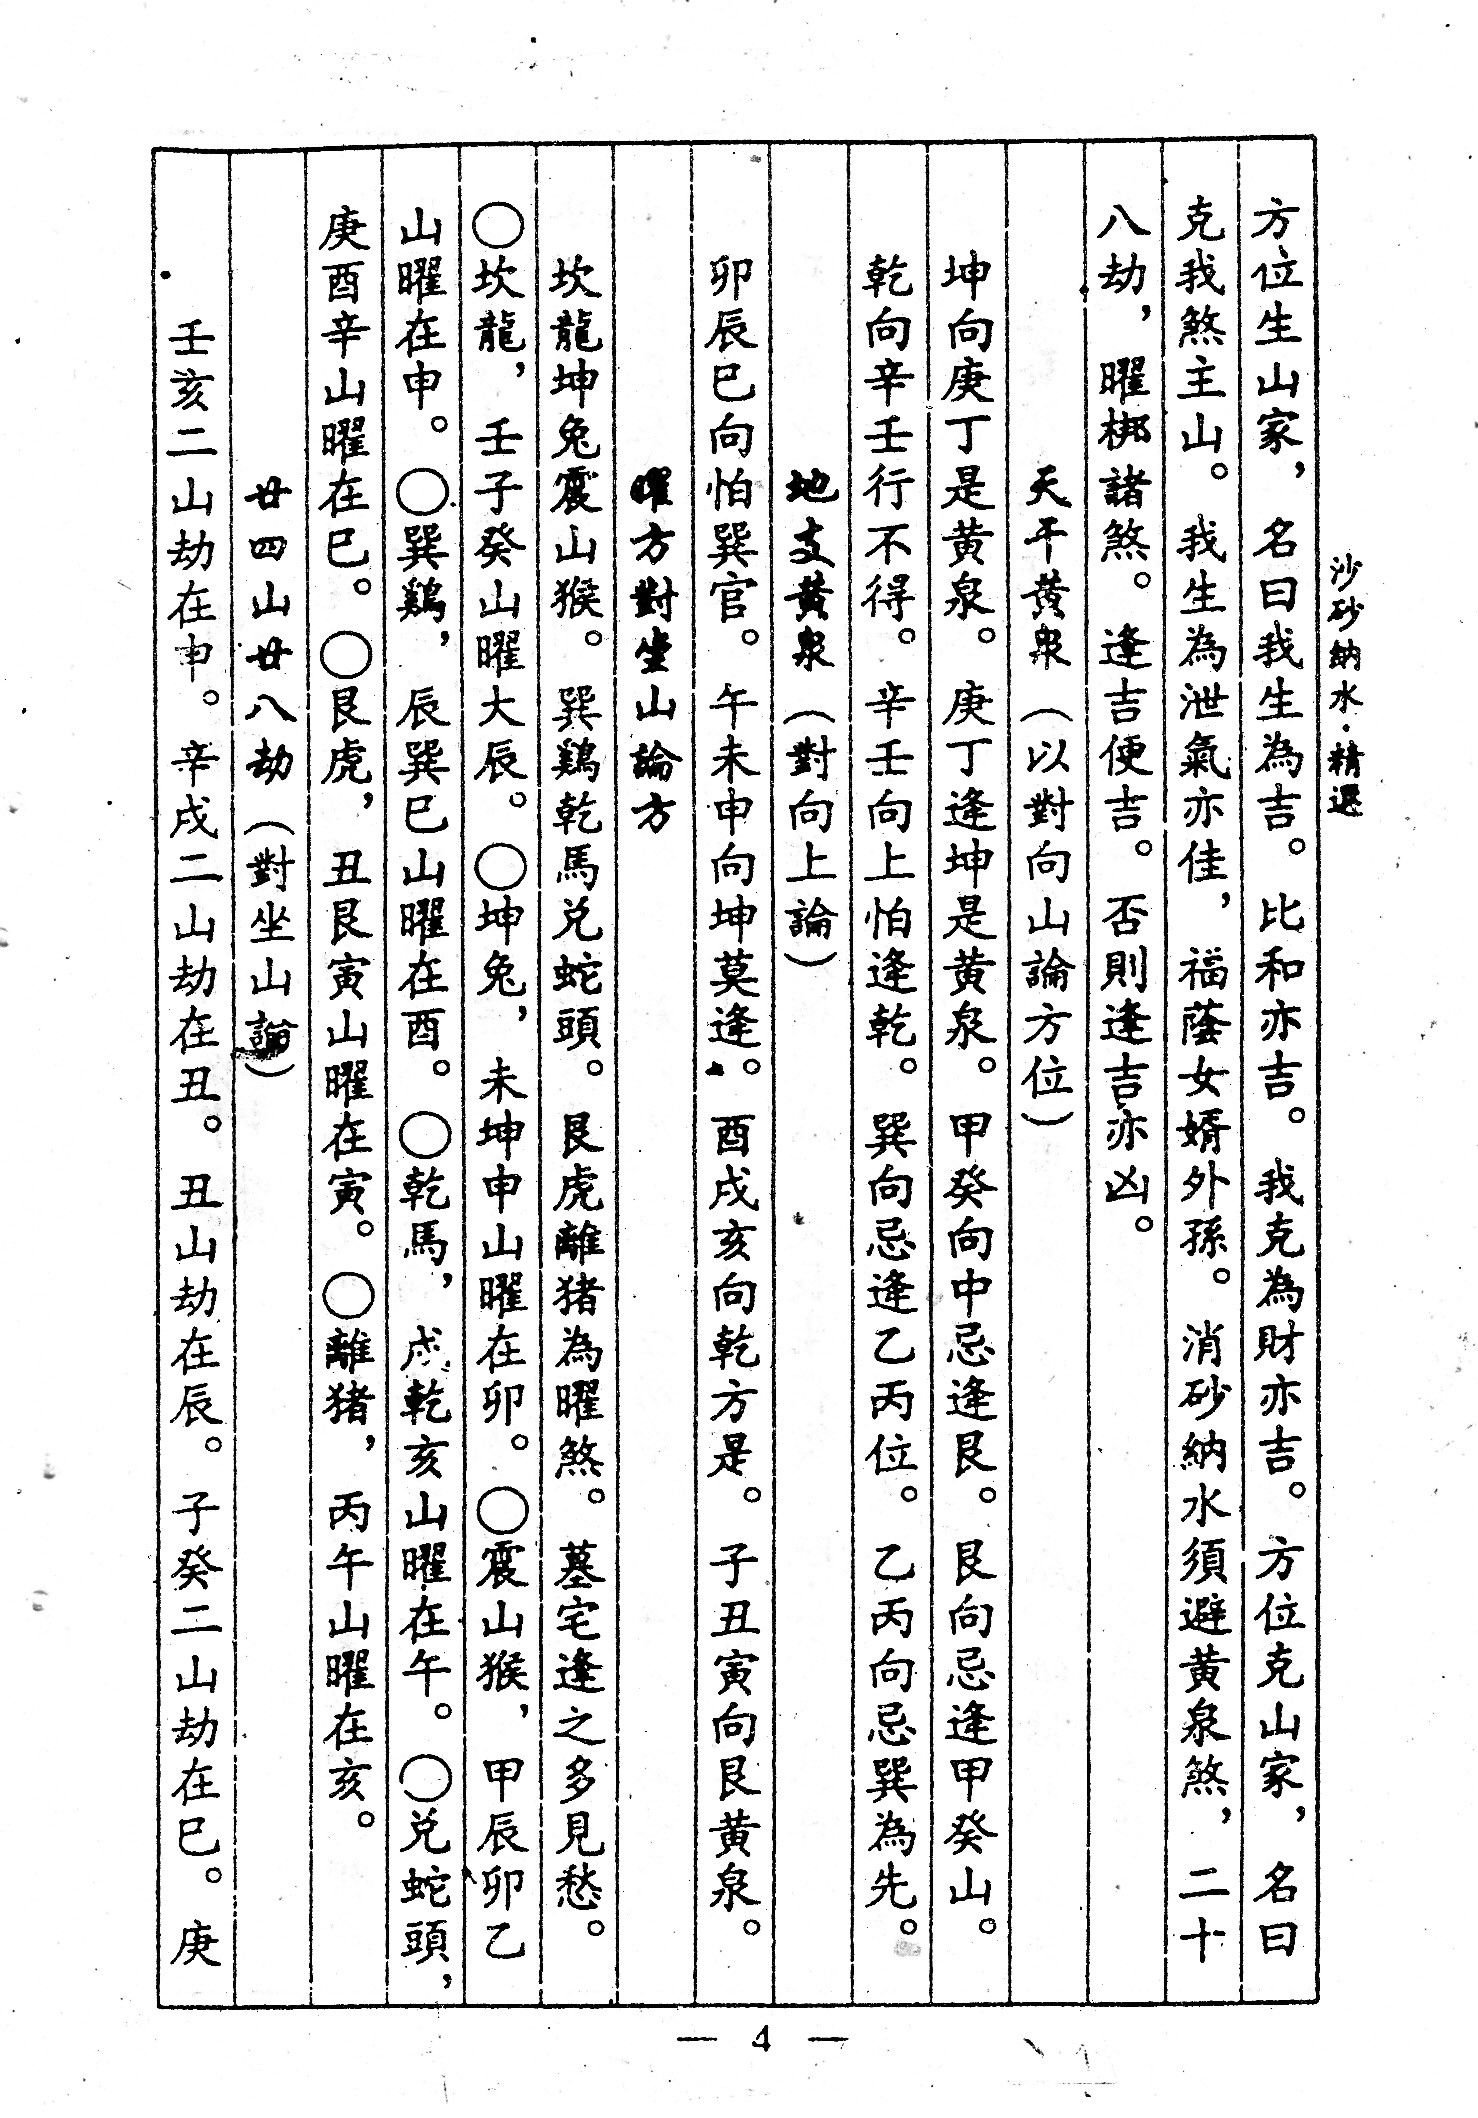 沙砂納水·精選
方位生山家，名曰我生為吉。比和亦吉。我克為財亦吉。方位克山家，名曰
克我煞主山。我生為泄氣亦佳，福蔭女婿外孫。消砂納水須避黃泉煞，二十
八劫，曜梆諸煞。逢吉便吉。否則逢吉亦凶。
天干黃泉（以對向山論方位）
坤向庚丁是黃泉。庚丁逢坤是黃泉。甲癸向中忌逢艮。艮向忌逢甲癸山。
乾向辛壬行不得。辛壬向上怕逢乾。巽向忌逢乙丙位。乙丙向忌巽為先。
地支黃泉（對向上論）
卯辰巳向怕巽官。午未申向坤莫逢。酉戌亥向乾方是。子丑寅向艮黃泉。
曜方對坐山論方
坎龍坤兔震山猴。巽鷄乾馬兌蛇頭。艮虎離猪為曜煞。墓宅逢之多見愁。
〇坎龍，壬子癸山曜大辰。〇坤兔，未坤申山曜在卯。〇震山猴，甲辰卯乙
山曜在申。〇巽鷄，辰巽巳山曜在酉。〇乾馬，戌乾亥山曜在午。〇兌蛇頭，
庚酉辛山曜在巳。〇艮虎，丑艮寅山曜在寅。〇離猪，丙午山曜在亥。
廿四山廿八劫（對坐山論）
壬亥二山劫在申。辛戌二山劫在丑。丑山劫在辰。子癸二山劫在巳。庚
— 4 —